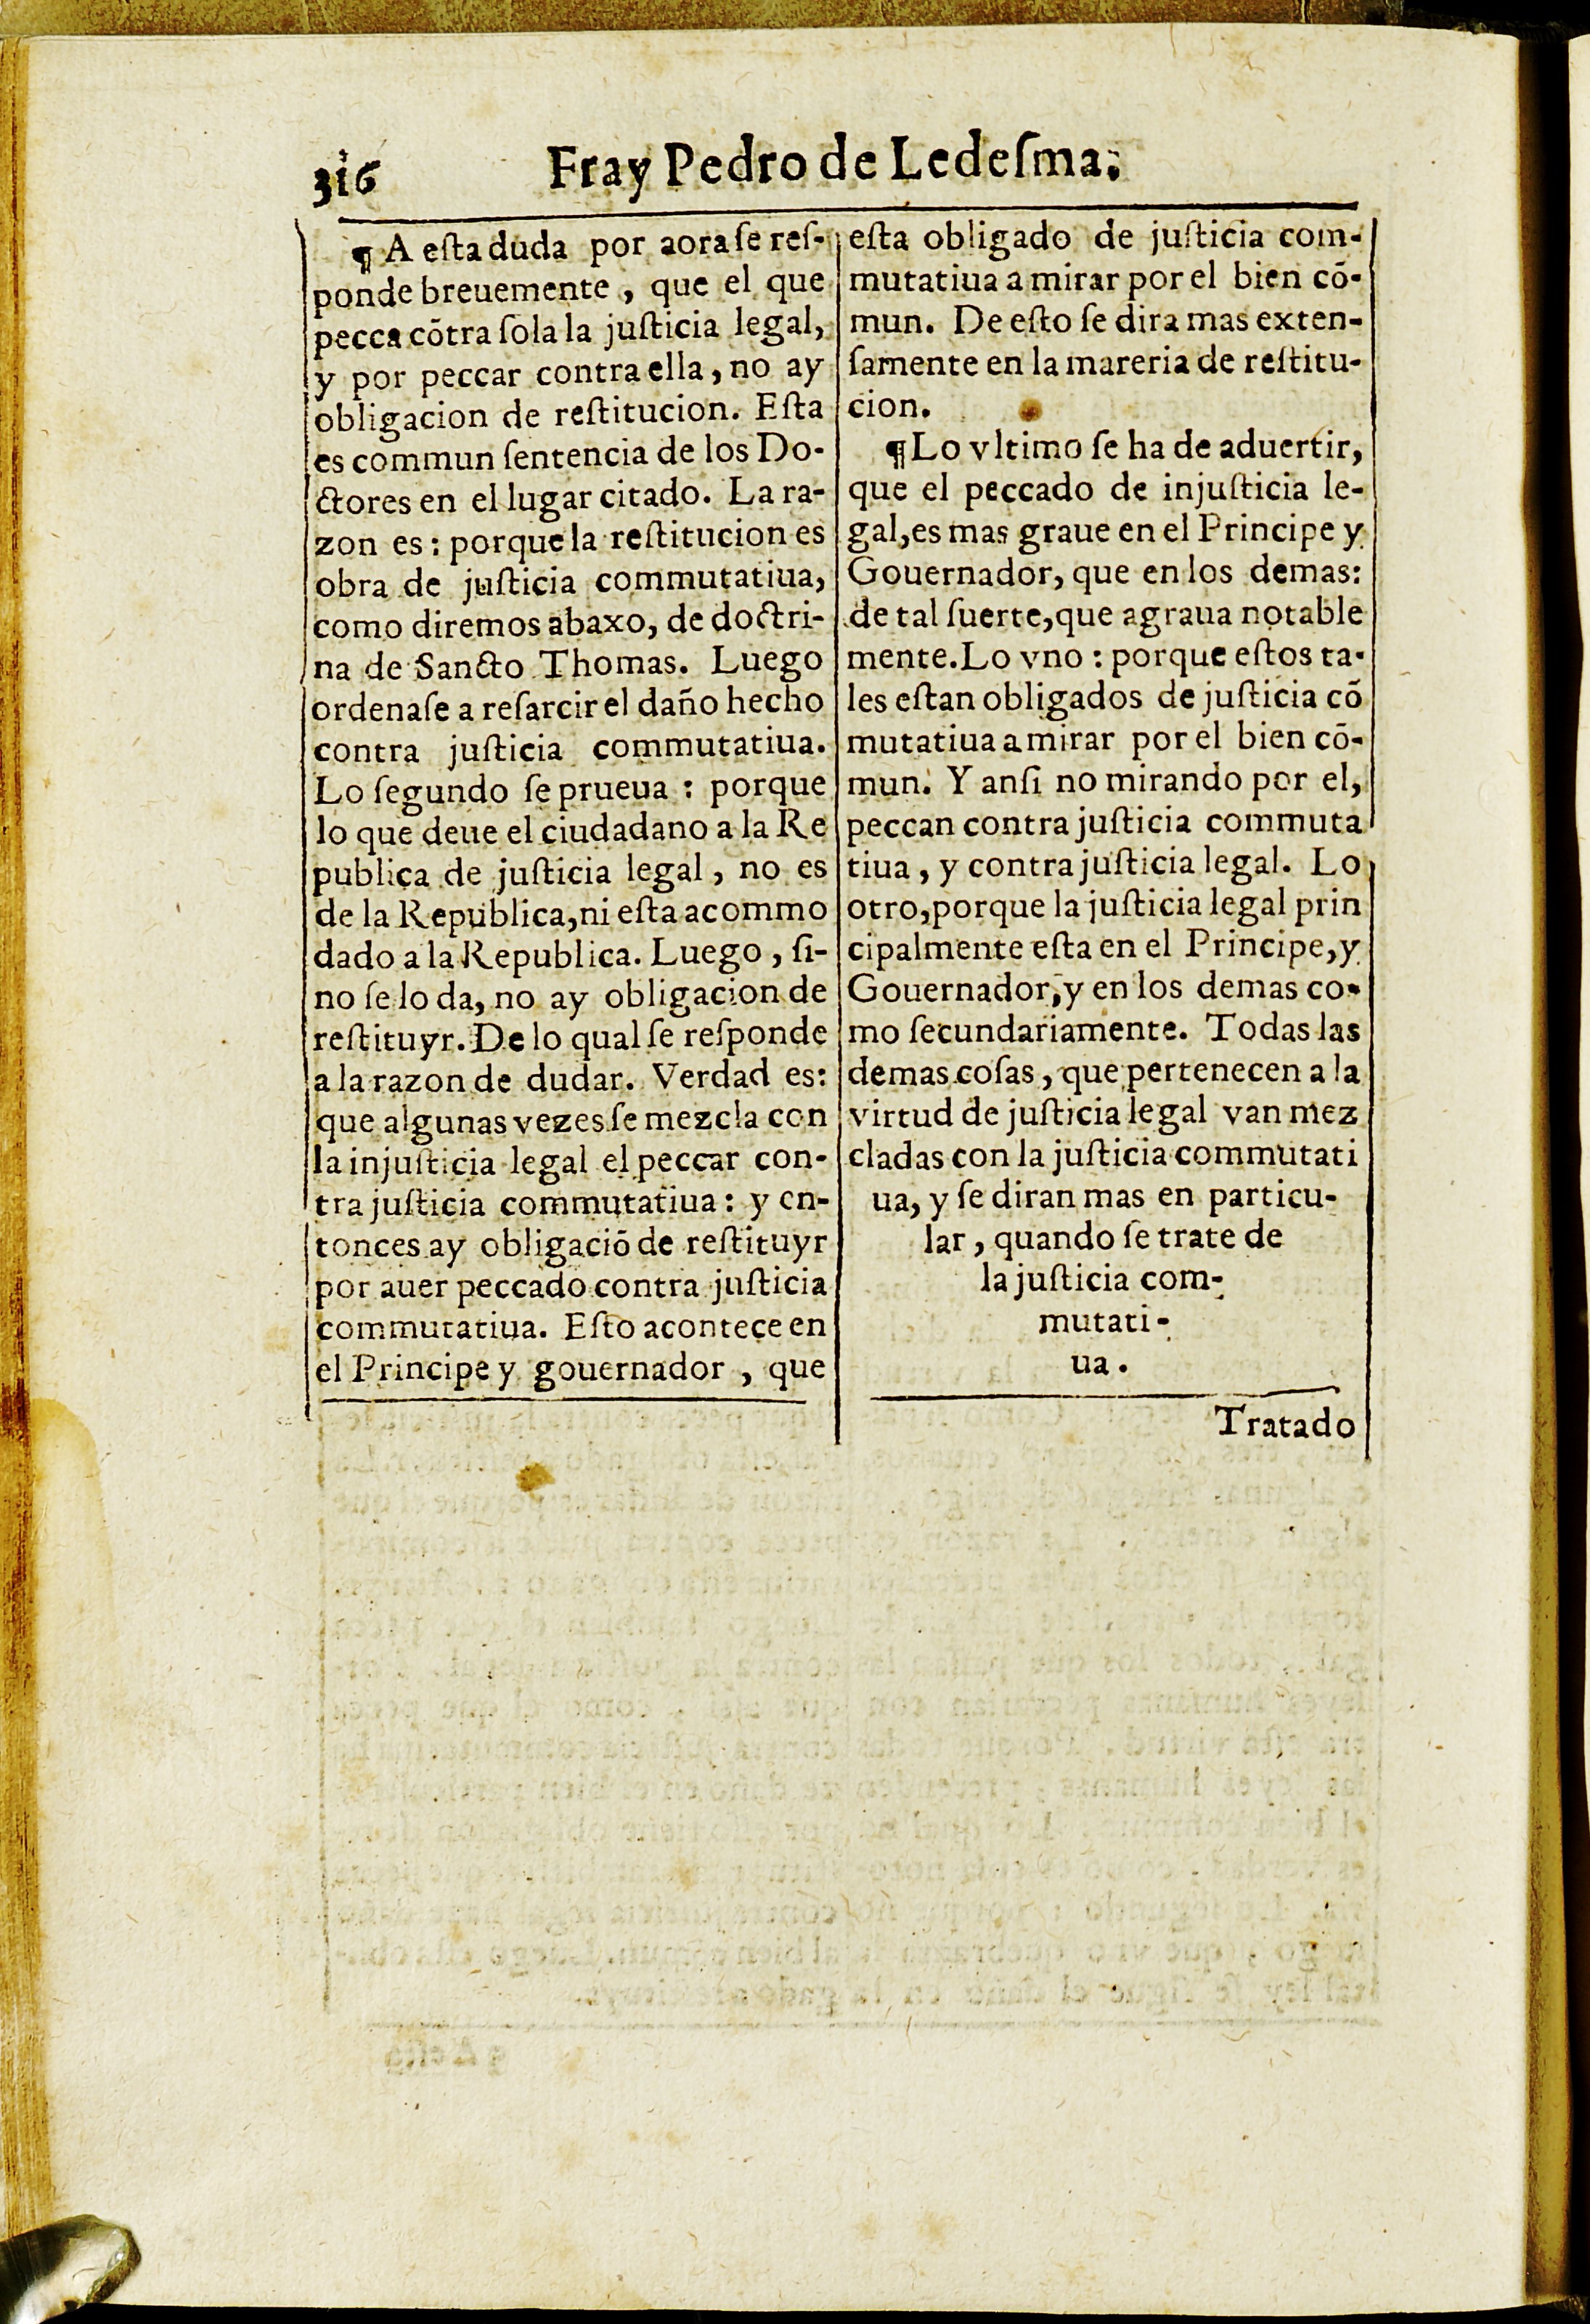 316
Fray Pedro de Ledeſma.
¶ A eſta duda por aora ſe reſ-
ponde breuemente, que el que
pecca cõtra ſola la juſticia legal,
y por peccar contra ella, no ay
obligacion de reſtitucion. Eſta
es commun ſentencia de los Do-
ctores en el lugar citado. La ra-
zon es: porque la reſtitucion es
obra de juſticia commutatiua,
como diremos abaxo, de doctri-
na de Sancto Thomas. Luego
ordenaſe a reſarcir el daño hecho
contra juſticia commutatiua.
Lo ſegundo ſe prueua: porque
lo que deue el ciudadano a la Re
publica de juſticia legal, no es
de la Republica, ni eſta acommo
dado a la Republica. Luego, ſi-
no ſe lo da, no ay obligacion de
reſtituyr. De lo qual ſe reſponde
a la razon de dudar. Verdad es:
que algunas vezes ſe mezcla con
la injuſticia legal el peccar con-
tra juſticia commutatiua: y en-
tonces ay obligaciõ de reſtituyr
por auer peccado contra juſticia
commutatiua. Eſto acontece en
el Principe y gouernador, que
eſta obligado de juſticia com-
mutatiua a mirar por el bien cõ-
mun. De eſto ſe dira mas exten-
ſamente en la mareria de reſtitu-
cion.
¶ Lo vltimo ſe ha de aduertir,
que el peccado de injuſticia le-
gal, es mas graue en el Principe y
Gouernador, que en los demas:
de tal ſuerte, que agraua notable
mente. Lo vno: porque eſtos ta-
les eſtan obligados de juſticia cõ
mutatiua a mirar por el bien cõ-
mun. Y anſi no mirando por el,
peccan contra juſticia commuta
tiua, y contra juſticia legal. Lo
otro, porque la juſticia legal prin
cipalmente eſta en el Principe, y
Gouernador, y en los demas co-
mo ſecundariamente. Todas las
demas coſas, que pertenecen a la
virtud de juſticia legal van mez
cladas con la juſticia commutati
ua, y ſe diran mas en particu-
lar, quando ſe trate de
la juſticia com-
mutati-
ua.
Tratado